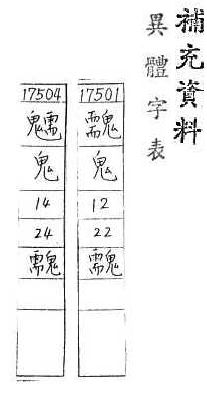 補充資料
異體字表
17501
䰰
鬼
12
22
䰰
17504
鬼
14
24
䰰